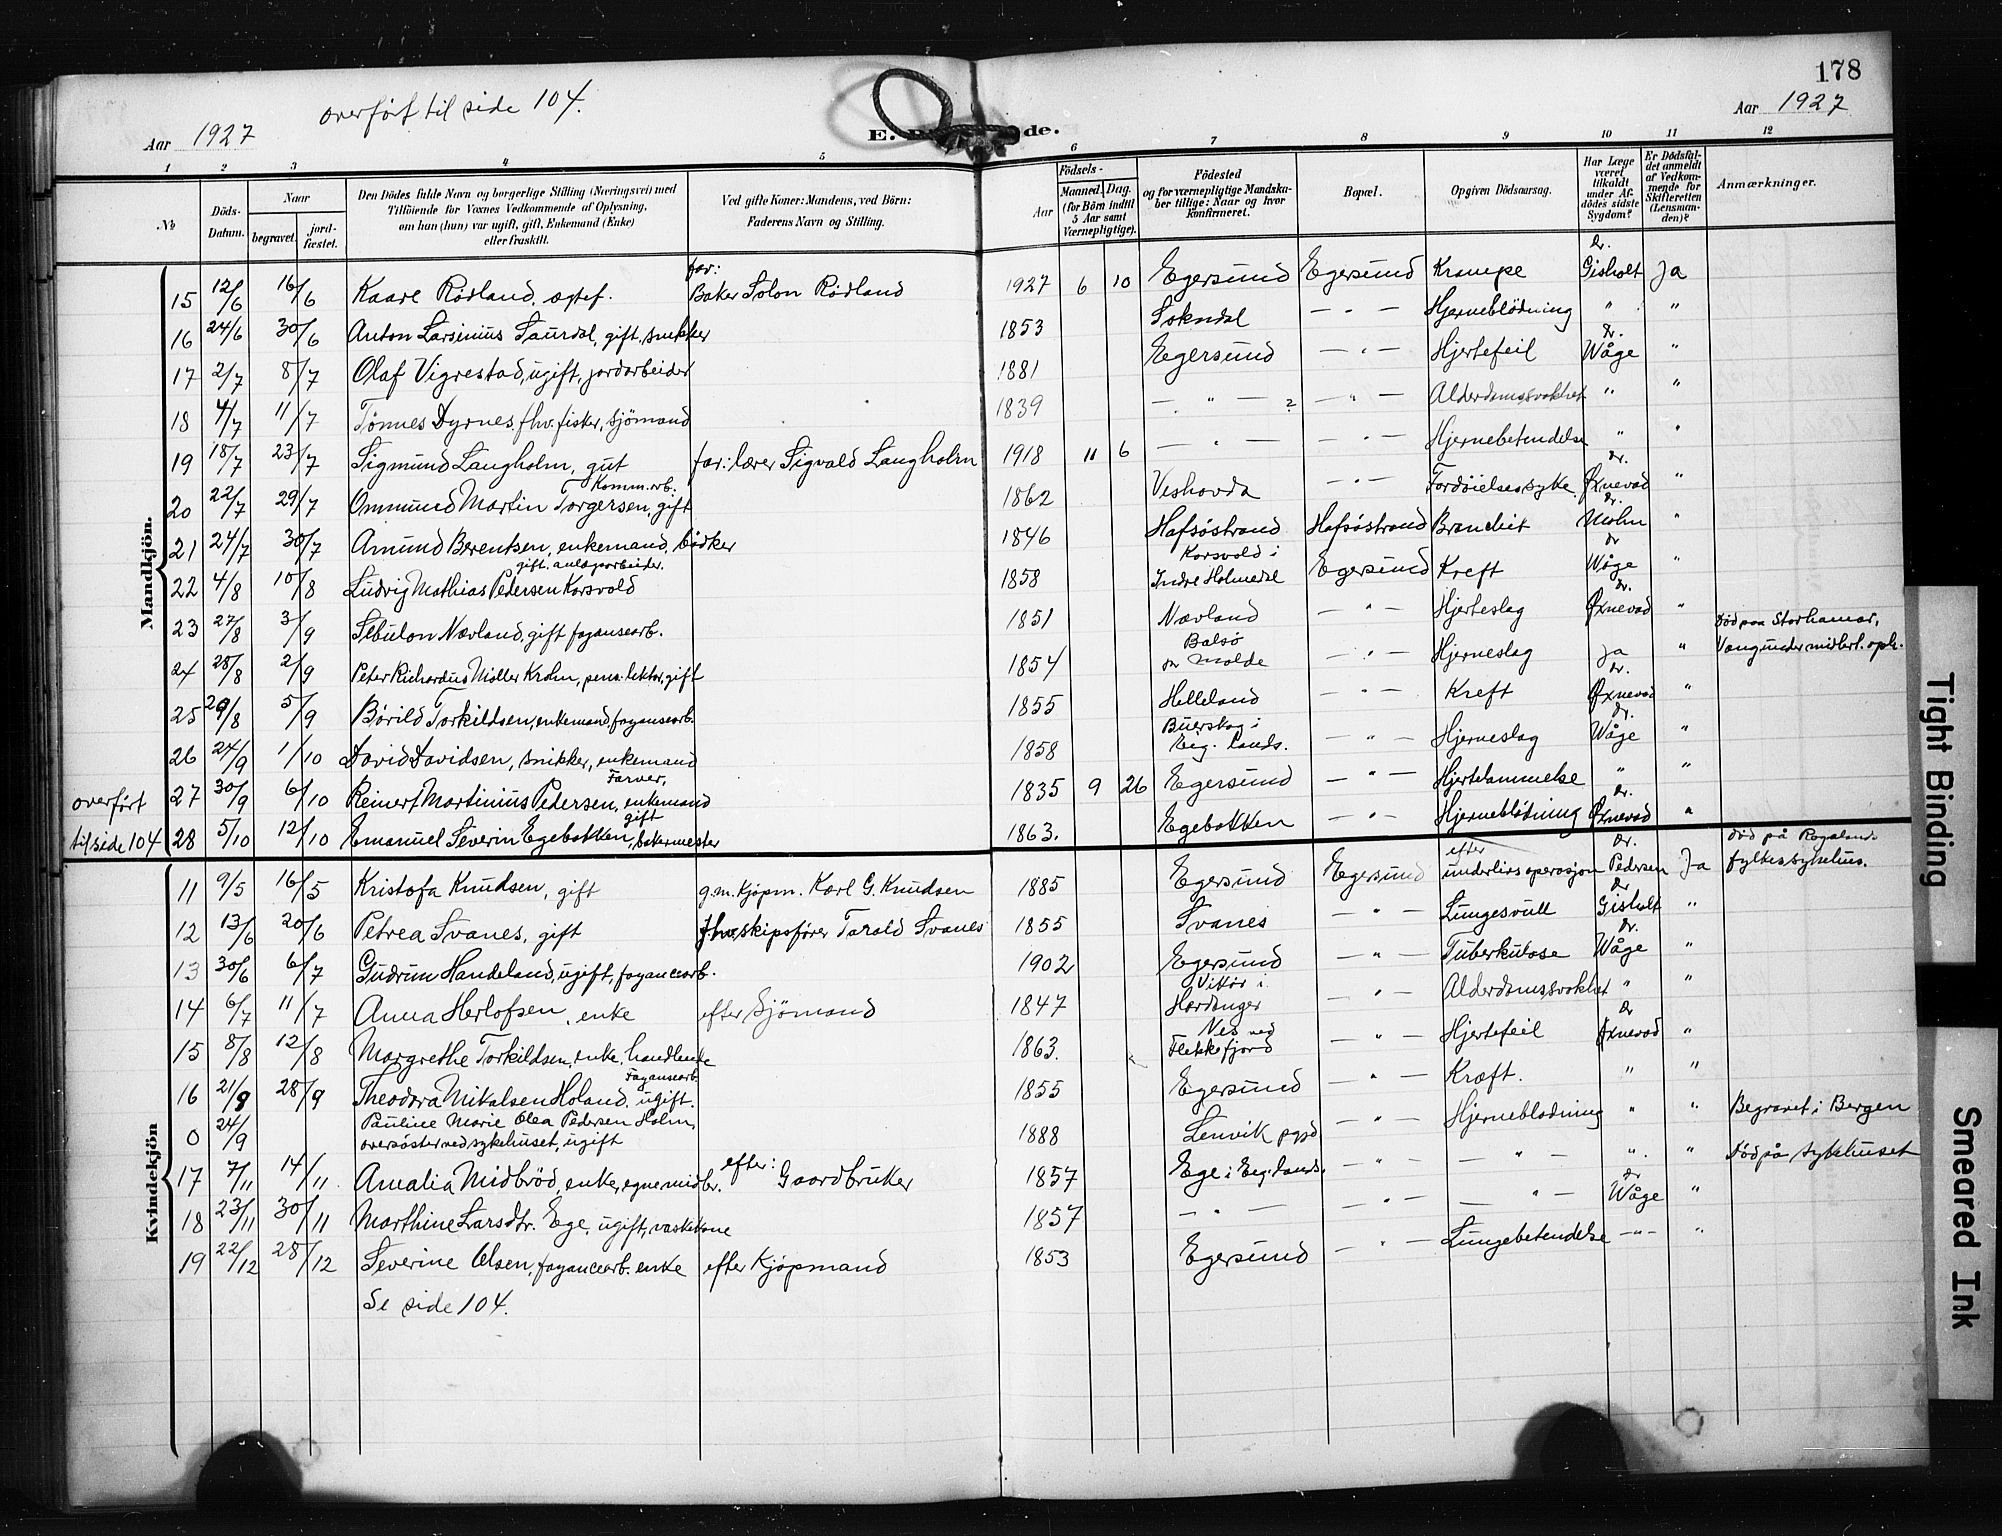 178
Aar 1927 overfört til side 104.
E. de.
Aar 1927
1 2 3 4 5 6 7 8 9 10 11 12
No
Döds-Datum.
Naar
begravet.
jord-fæstet.
Den Dödes fulde Navn og borgerlige Stilling (Næringsvei) med
Tilföiende for Voxnes Vedkommende af Oplysning,
om han (hun) var ugift, gift, Enkemand (Enke)
eller fraskilt.
Ved gifte Koner: Mandens, ved Börn:
Faderens Navn og Stilling.
Födsels-
Aar
Maaned. Dag.
(for Börn indtil
5 Aar samt
Værnepligtige).
Födested
og for værnepligtige Mandska-
ber tillige: Naar og hvor
konfirmeret.
Bopæl.
Opgiven Dödsaarsag.
Har Læge
været
tilkaldt
under Af-
dödes sidste
Sygdom?
Er Dödsfal-
det anmeldt
af Vedkom-
mende for
Skifteretten
(Lensman-
den)?
Anmærkninger.
Mandkjön.
15 12/6 16/6 Kaare Rödland, ægtef. far: Baker Solon Rödland 1927 6 10 Egersund Egersund Krampe Dr. Gisholt Ja
16 24/6 30/6 Anton Larsinius Saurdal, gift, snekker 1853 Sokndal — " — Hjerneblödning " "
17 2/7 8/7 Olaf Vigrestad, ugift, jordarbeider 1881 Egersund — " — Hjertefeil Dr. Wåge "
18 4/7 11/7 Tönnes Dyrnes. fhv. fisker, sjömand 1839 — " — ? — " — Alderdomssvakhet "
19 18/7 23/7 Sigmund Langholm, gut far: lærer Sigvald Langholm 1918 11 6 — " — — " — Hjernebetendelse " "
20 22/7 29/7 Ommund Martin Torgersen, gift Komm. arb. 1862 Veshovda — " — Fordöielsessyke. Dr. Øxnevad "
21 24/7 30/7 Amund Berentsen, enkemand, bödker 1846 Hafsöstrand Hafsöstrand Brandsit Dr. Mohn "
22 4/8 10/8 Ludvig Mathias Pedersen Korsvold gift. anlægsarbeider. 1858 Korsvold i Indre Holmedal Egersund Kreft Dr Wåge "
23 27/8 3/9 Sebulon Nævland, gift fayansearb. 1851 Nævland — " — Hjerteslag Dr. Øxnevad "
24 28/8 2/9 Peter Richardus Möller Krohn, pens. lektor, gift 1854 Bolsö pr Molde — " — Hjerneslag Ja " Död paa Storhamar, Vang under midlert. oph.
25 29/8 5/9 Börild Torkildsen, enkemand, fayansearb. 1855 Helleland — " — Kreft Dr. Øxnevad "
26 24/9 1/10 David Davidsen, snikker, enkemand 1858 Buerskog i Eig. lands. — " — Hjerneslag Dr. Wåge "
overfört 27 30/9 6/10 Reinert Martinius Pedersen, enkemand Farver, 1835 9 26 Egersund — " — Hjertelammelse " "
til side 104 28 5/10 12/10 Emanuel Severin Egebakken, bakermester gift 1863. Egebakken — " — Hjerneblödning Dr. Øxnevad " Död på Rogalands fylkessykehus.
Kvindekjön
11 9/5 16/5 Kristofa Knudsen, gift g.m. Kjöpm. Karl G. Knudsen 1885 Egersund Egersund efter underlivsoperasjon Dr. Pedersen Ja
12 13/6 20/6 Petrea Svanes, gift fhv. skipsförer Tarald Svanes 1855 Svanes — " — Lungesvull Dr Gisholt "
13 30/6 6/7 Gudrun Handeland, ugift, fayancearb. 1902 Egersund — " — Tuberkulose Dr. Wåge "
14 6/7 11/7 Anna Herlofsen, enke efter Sjömand 1847 Vikör i Hardanger — " — Alderdomssvakhet " "
15 8/8 12/8 Margrethe Torkildsen, enke, handlende 1863. Nes ved Flekkefjord — " — Hjertefeil Dr Øxnevad "
16 21/8 28/9 Theodora Mikalsen Holand, ugift. Fayansearb. 1855 Egersund — " — Kræft. " "
0 24/9 Pauline Marie Olea Pedersen Holm, oversöster ved sykehuset, ugift 1888 Lenvik pgsd — " — Hjerneblödning " " Begravet i Bergen
17 7/11 14/11 Amalia Midbröd, enke, egne midler. efter: Gaardbruker 1857 Ege i Eig. lands. — " — — " — " " Död på sykehuset
18 23/11 30/11 Marthine Larsdtr. Ege, ugift, vaskekone 1857 — " — — " — — " — Dr Wåge "
19 22/12 28/12 Severine Olsen, fayancearb. enke efter Kjöpmand 1853 Egersund — " — Lungebetendelse — " — "
Se side 104.
Tight Binding
Smeared Ink